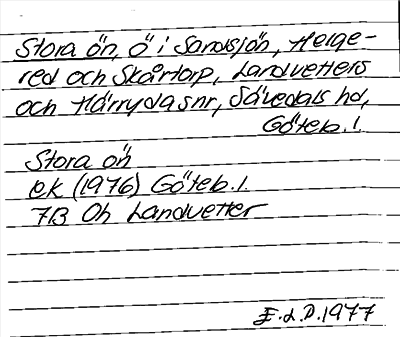 Stora ön, ö i Sandsjön, Helge-
red och Skårtorp, Landvetters
och Härryda snr, Sävedals hd,
Göteb. l.
Stora ön
ek (1976) Göteb. l.
7B 0h Landvetter
F.L.D. 1977